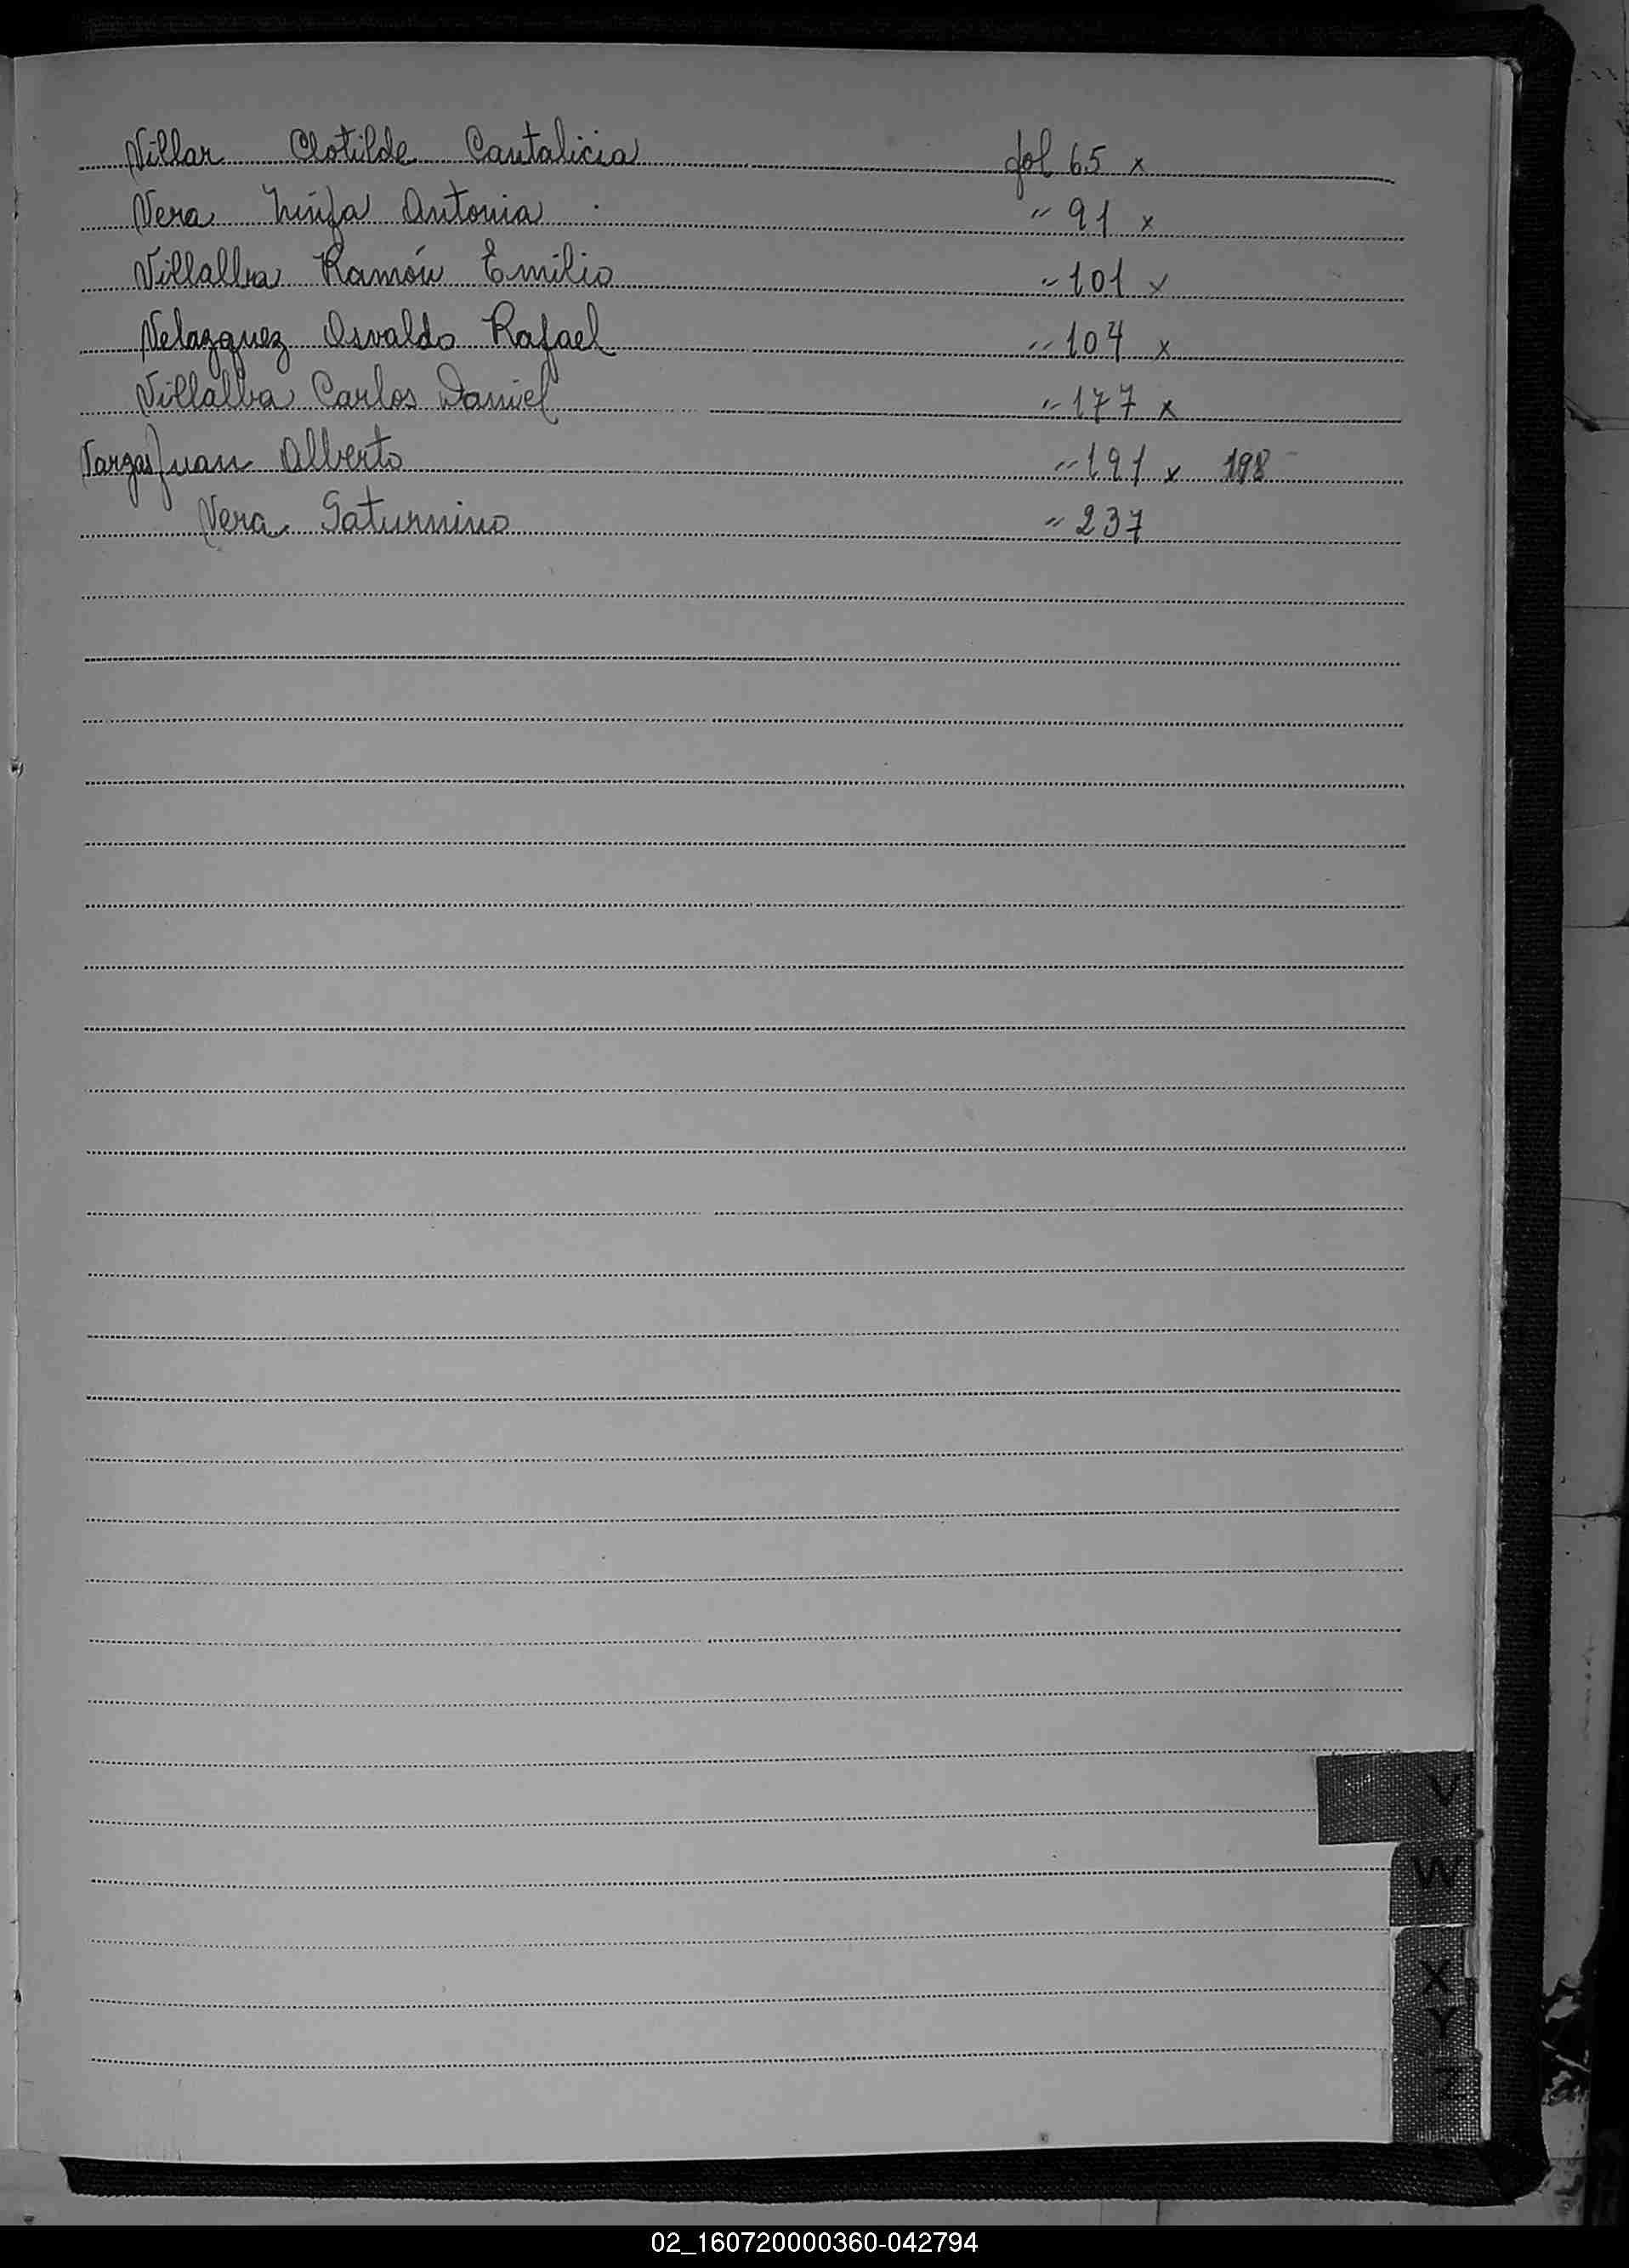 Villar Clotilde Cantalicia fol 65 x
Vera Ninfa Antonia " 91 x
Villalba Ramón Emilio " 101 x
Velazquez Osvaldo Rafael " 104 x
Villalba Carlos Daniel " 177 x
Vargas Juan Alberto " 191 x 198
Vera Saturnino " 237
V
W
X
Y
Z
02_160720000360-042794